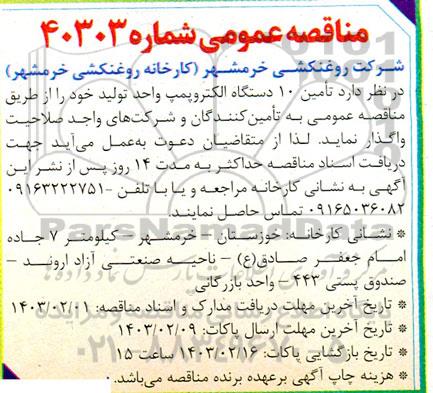 مناقصه عمومی شماره ۴۰۳۰۳
شرکت روغنکشی خرمشهر (کارخانه روغنکشی خرمشهر)
در نظر دارد تأمین ۱۰ دستگاه الکتروپمپ واحد تولید خود را از طریق
مناقصه عمومی به تأمین‌کنندگان و شرکت‌های واجد صلاحیت
واگذار نماید. لذا از متقاضیان دعوت به‌عمل می‌آید جهت
دریافت اسناد مناقصه حداکثر به مدت ۱۴ روز پس از نشر این
آگهی به نشانی کارخانه مراجعه و یا با تلفن ۰۹۱۶۳۲۲۲۷۵۱-
۰۹۱۶۵۰۳۶۰۸۲ تماس حاصل نمایند.
* نشانی کارخانه: خوزستان - خرمشهر - کیلومتر ۷ جاده
امام جعفر صادق(ع) - ناحیه صنعتی آزاد اروند -
صندوق پستی ۴۴۳- واحد بازرگانی
* تاریخ آخرین مهلت دریافت مدارک و اسناد مناقصه: ۱۴۰۳/۰۲/۰۱
* تاریخ آخرین مهلت ارسال پاکات: ۱۴۰۳/۰۲/۰۹
* تاریخ بازگشایی پاکات: ۱۴۰۳/۰۲/۱۶ ساعت ۱۵
* هزینه چاپ آگهی برعهده برنده مناقصه می‌باشد.
ParsNamadData